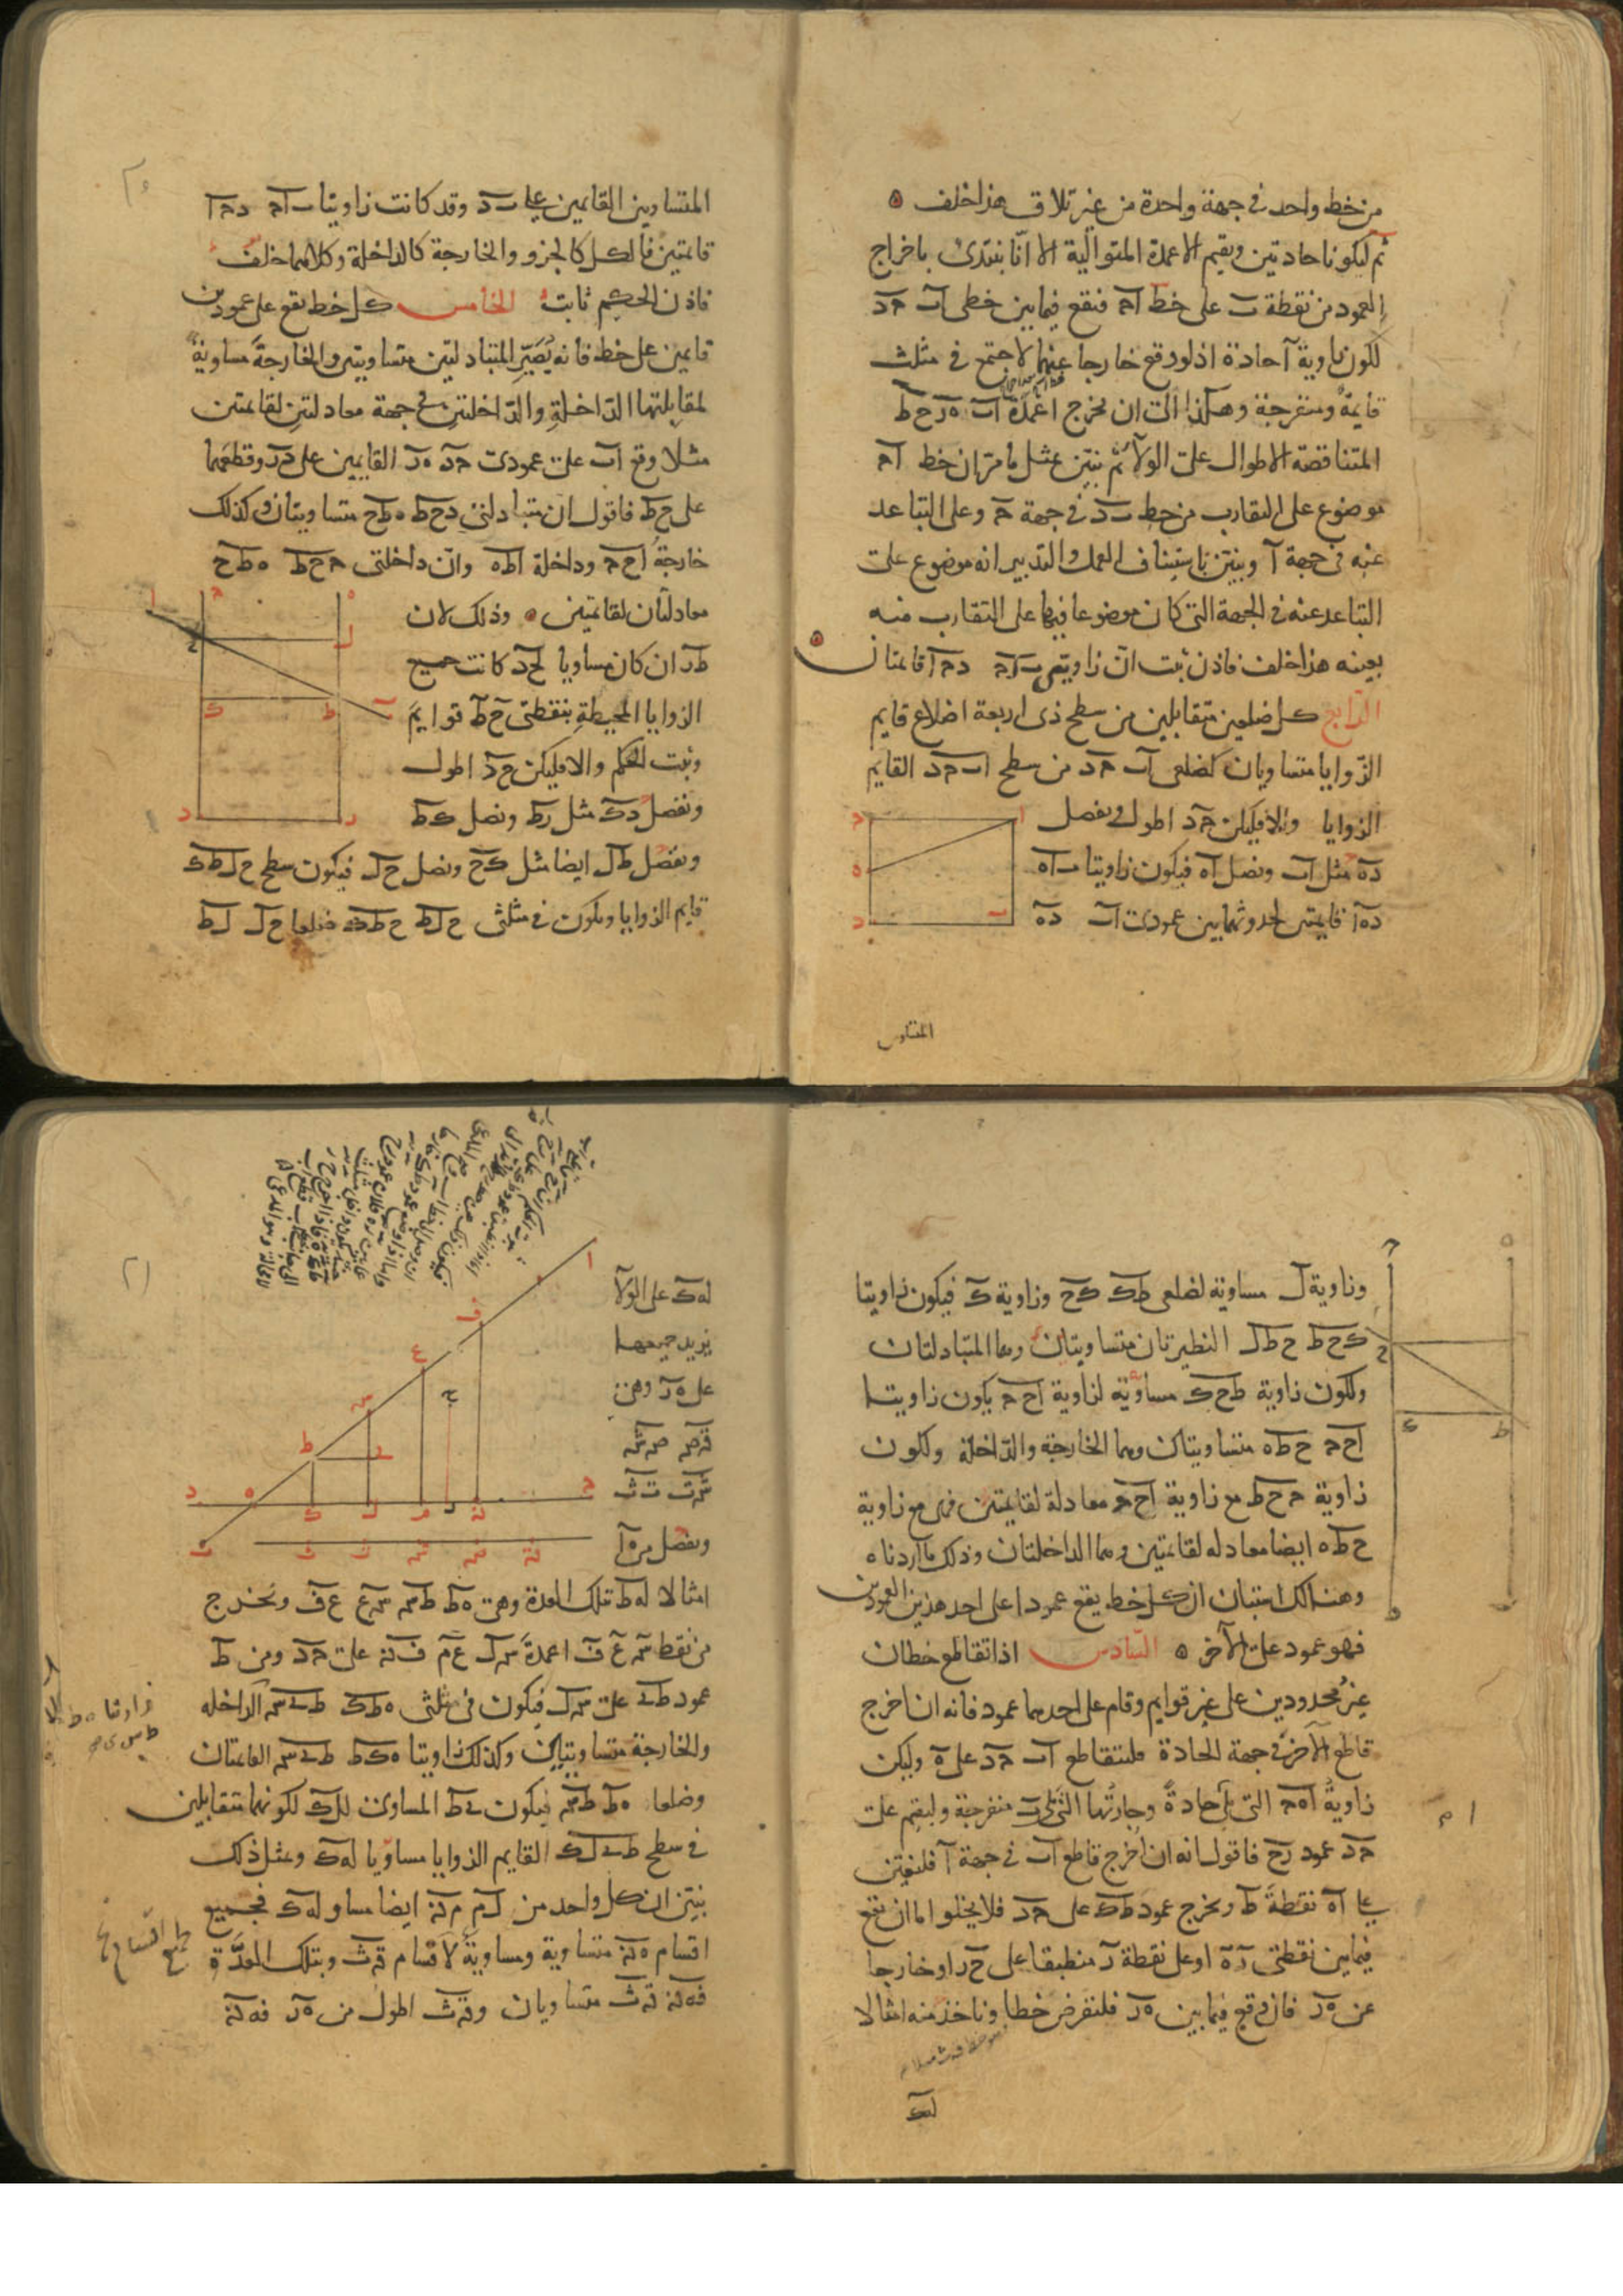 من خط واحد في جهة واحدة من غير تلاق هذا خلف ه
ثم ليكونا حادتين ونقيم الاعمدة المتوالية الا انا نبتدئ باخراج
العمود من نقطة ب على خط اح فنقع فيما بين خطى اب حد
لكون زاوية ا حادة اذ لو وقع خارجا عنهما لاجتمع في مثلث
قايمة ومنفرجة وهكذا الى ان نخرج اعمدة اب ه ر ح ط
المتناقصة الاطوال على الولاء ثم نبين بمثل ما مر ان خط اح
موضوع على التقارب من خط ب د في جهة ح وعلى التباعد
عنه في جهة ا ونبين باستيناف العمل والتدبير انه موضوع على
التباعد عنه في الجهة التى كان موضوعا فيها على التقارب منه
بعينه هذا خلف فاذن ثبت ان زاويتى ب اح د ح ا قائمتان
الرابع كل ضلعين متقابلين من سطح ذى اربعة اضلاع قايم
الزوايا متساويان كضلعى اب حد من سطح اب حد القايم
الزوايا والا فليكن حد اطول ونفصل
ده مثل اب ونصل اه فيكون زاويتا ب اه
ده ا قايمتين لحدوثهما بين عمودى اب ده
المتساوين
المتساوين القايمين على ب د وقد كانت زاويتا ب اح د ح ا
قائمتين فالكل كالجزو والخارجة كالداخلة وكلاهما خلف
فاذن الحكم ثابت الخامس كل خط يقع على عمودين
قايمين على خط فانه يصير المتبادلتين متساويتين والخارجة مساوية
لمقابلتها الداخلة والداخلتين في جهة معادلتين لقائمتين
مثلا وقع اب على عمودى حد ه ر القايمين على د ر وقطعهما
على ح ط فاقول ان متبادلتى د ح ط ه ط ح متساويتان وكذلك
خارجة ا ح ح وداخلة ا ط ه وان داخلتى ح ح ط ه ط ح
معادلتان لقائمتين وذلك لان
ط ر ان كان مساويا لح د كانت جميع
الزوايا المحيطة بنقطتى ح ط قوايم
وثبت الحكم والا فليكن ح د اطول
ونفصل د ك مثل ر ط ونصل ك ط
ونفصل ط ل ايضا مثل ك ح ونصل ح ل فيكون سطح ح ل ط ك
قايم الزوايا ويكون في مثلثى ح ل ط ح ط ك ضلعا ح ل ل ط
وزاوية ل مساوية لضلعى ط ك ك ح وزاوية ك فيكون زاويتا
ك ح ط ح ط ل النظيرتان متساويتان وهما المتبادلتان
ولكون زاوية ط ح ك مساوية لزاوية ا ح ح يكون زاويتا
ا ح ح ح ط ه متساويتان وهما الخارجة والداخلة ولكون
زاوية ح ح ط مع زاوية ا ح ح معادلة لقائمتين فهى مع زاوية
ح ط ه ايضا معادلة لقائمتين وهما الداخلتان وذلك ما اردناه
وهنالك استبان ان كل خط يقع عمودا على احد هذين العمودين
فهو عمود على الاخر ه السادس اذا تقاطع خطان
غير محدودين على غير قوايم وقام على احدهما عمود فانه ان اخرج
قاطع الاخر في جهة الحادة فليتقاطع اب حد على ه وليكن
زاوية ا ه ح التى تلى حادة وجارتها التى تلى ب منفرجة وليقم على
حد عمود ر ح فاقول انه ان اخرج قاطع اب في جهة ا فلنعين
على اه نقطة ط ونخرج عمود ط ك على حد فلا يخلوا اما ان يقع
فيما بين نقطتى ر ه او على نقطة ر منطبقا على ح ر او خارجا
عن ه ر فان وقع فيما بين ه ر فلنفرض خطا وناخذ منه امثالا
له ك
له ك على الولاء
يزيد جميعها
على ه ر وهى
ق ص ص ش
ش ت ت ث
ونفصل من ه ا
امثالا له ط بتلك العدة وهى ه ط ط س س ع ع ف ونخرج
من نقط س ع ف اعمدة س ل ع م ف ن على حد ومن ط
عمود ط ى على س ل فيكون في مثلثى ه ط ك ط ى س الداخله
والخارجة متساويتان وكذلك زاويتا ه ك ط ط ى س القائمتان
وضلعا ه ط ط س فيكون ى ط المساوى لل ك لكونهما متقابلين
في سطح ط ى ل ك القايم الزوايا مساويا له ك وبمثل ذلك
نبين ان كل واحد من ل م م ن ايضا مساو له ك فجميع
اقسام ه ن متساوية ومساوية لاقسام ق ث وبتلك العدة
فه ن ق ث متساويان وق ث اطول من ه ر فه ن